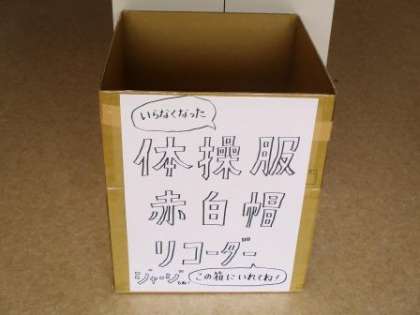 いらなくなった
体操服
赤白帽
リコーダー
ジャージ
この箱にいれてね!